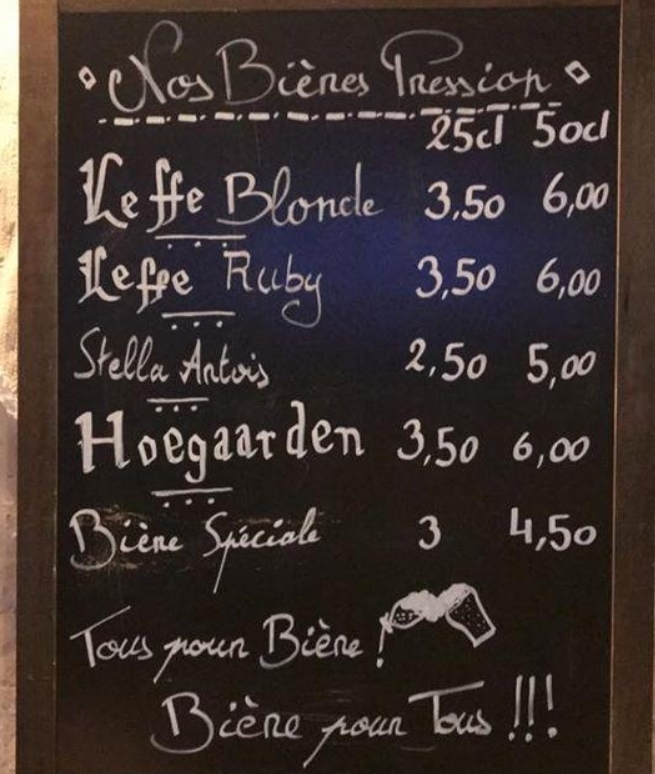 Nos Bières Pression
25cl 50cl
Leffe Blonde 3,50 6,00
Leffe Ruby 3,50 6,00
Stella Artois 2,50 5,00
Hoegaarden 3,50 6,00
Bière Spéciale 3 4,50
Tous pour Bière !
Bière pour Tous !!!